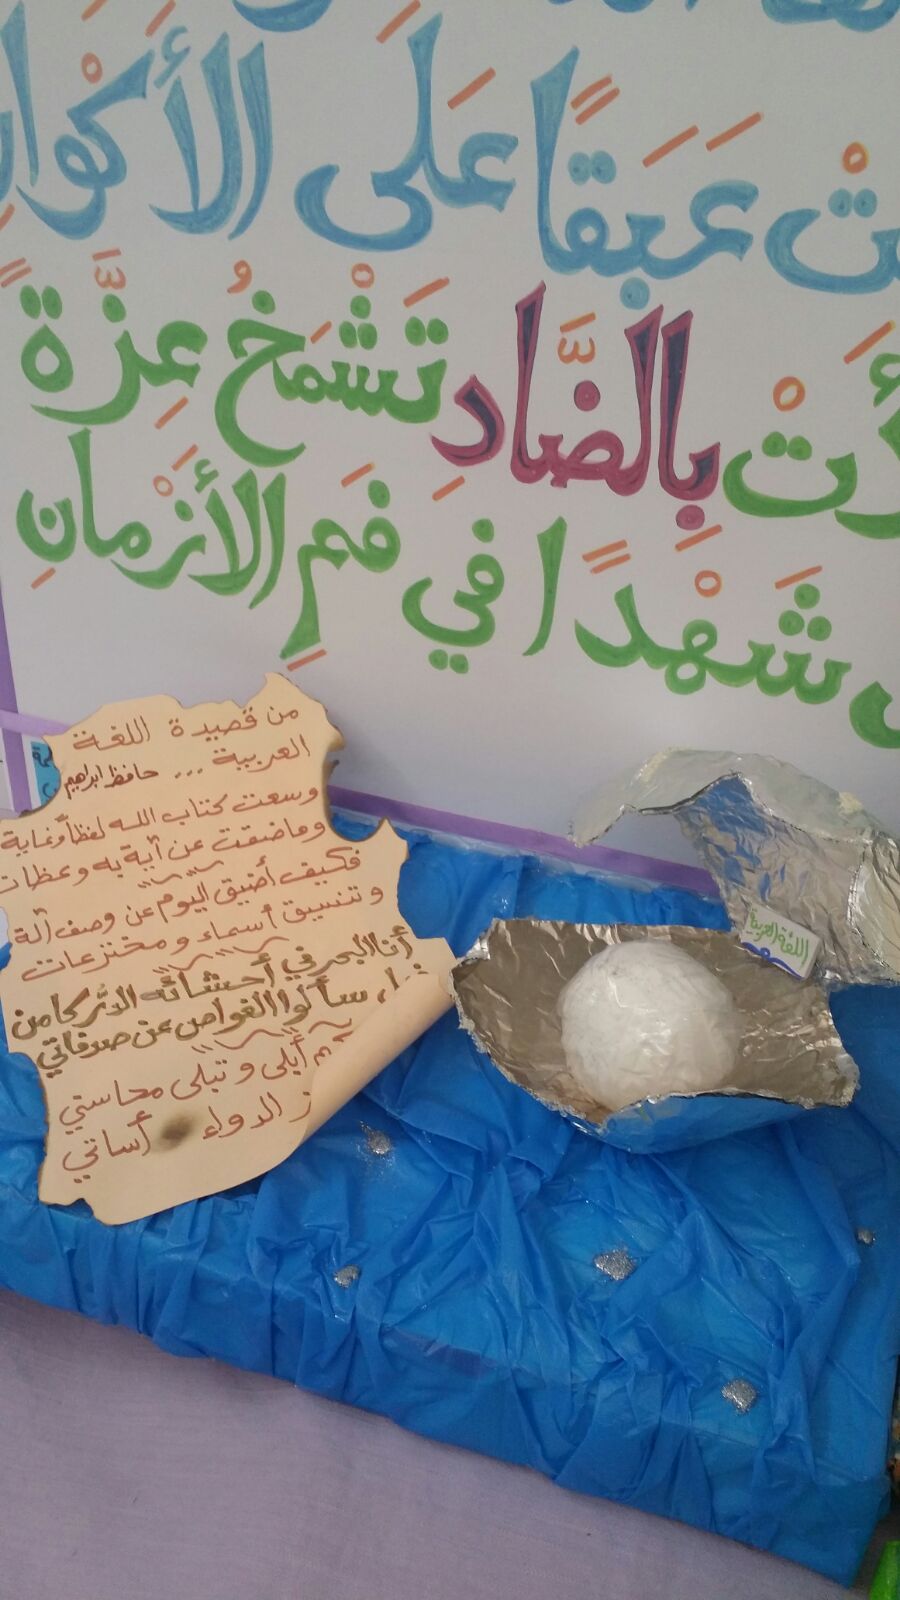 عَبَقًا عَلَى الأَكْوانِ
بِالضَّادِ تَشْمَخُ عِزَّةً
شَهْدًا في فَمِ الأَزْمانِ
من قصيدة اللغة
العربية ... حافظ ابراهيم
وسعت كتاب الله لفظاً وغاية
وما ضقت عن آية به وعظات
فكيف أضيق اليوم عن وصف آلة
وتنسيق أسماء ومخترعات
أنا البحر في أحشائه الدر كامن
سألوا الغواص عن صدفاتي
أبلى وتبلى محاسني
الدواء أساتي
اللغة العربية